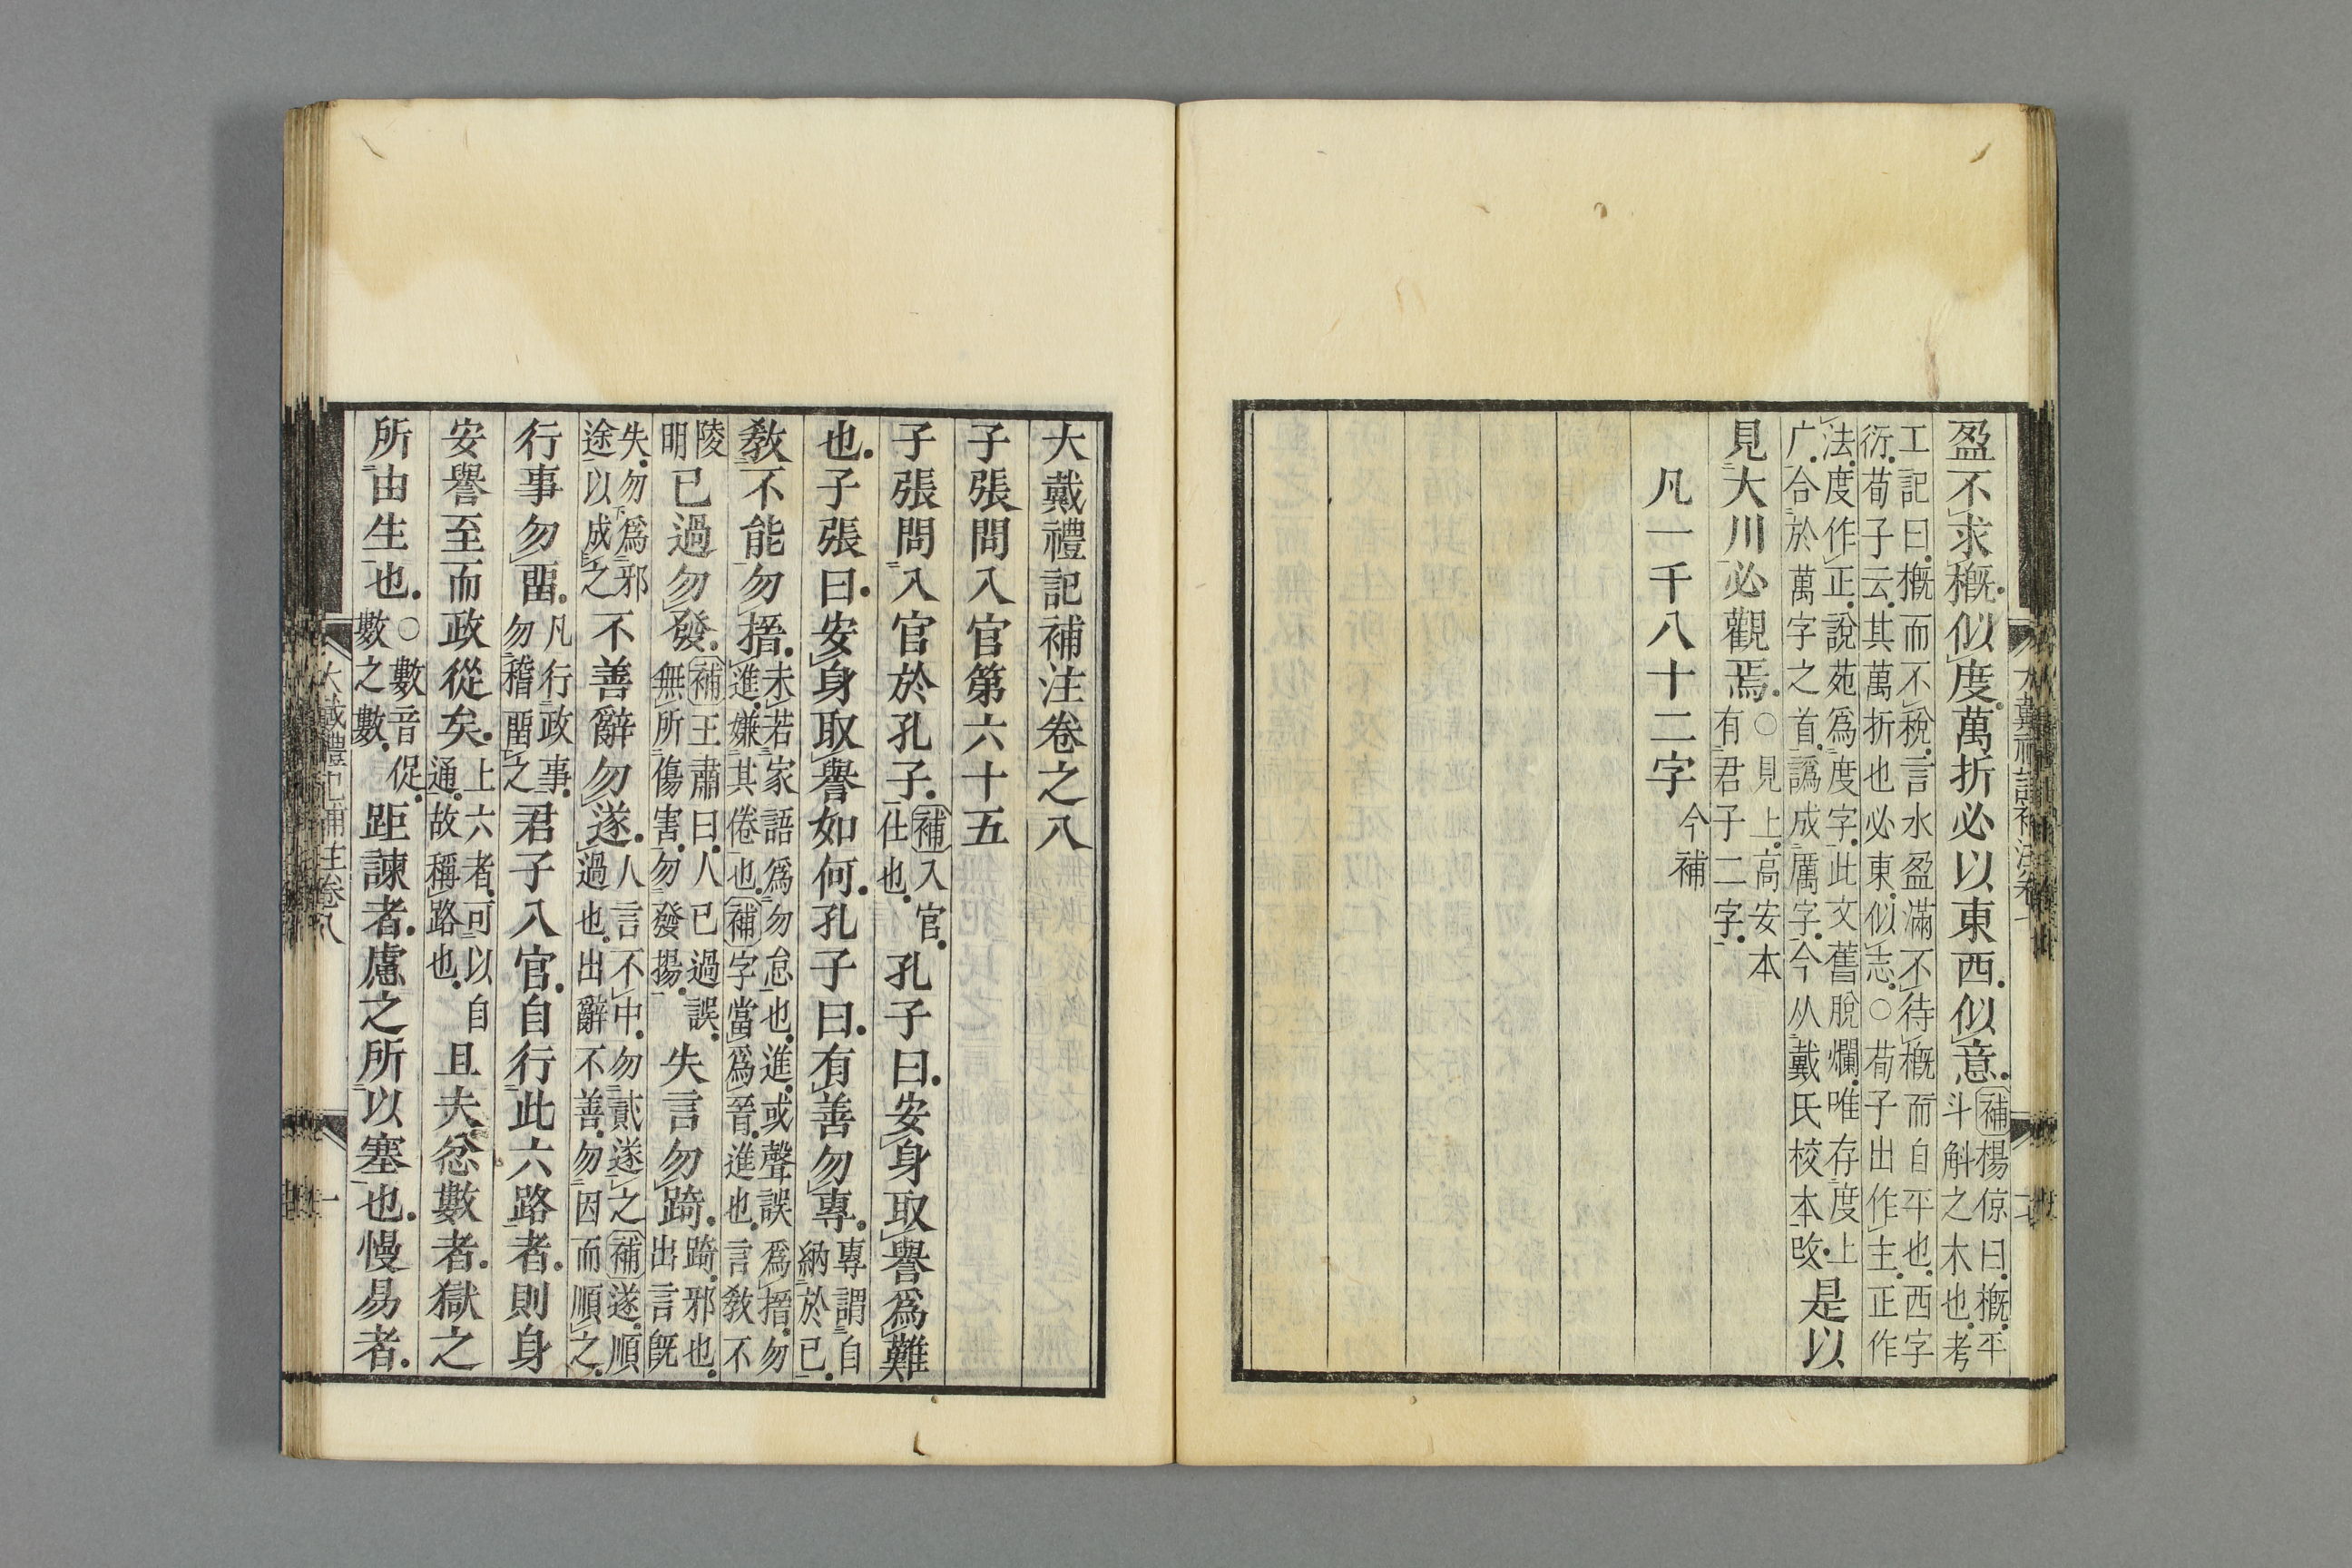 盈不求槪似度萬折必以東西似意補楊倞曰槪平斗斛之木也考
工記曰槪而不稅言水盈滿不待槪而自平也西字衍荀子云其萬折也必東似志○荀子出作主正作
法度作正說苑爲度字此文舊脫爛唯存度上广合於萬字之首譌成厲字今从戴氏校本改是以
見大川必觀焉○見上高安本有君子二字
凡一千八十二字今補
大戴禮記補注卷之八
子張問入官第六十五
子張問入官於孔子補入官仕也孔子曰安身取譽爲難
也子張曰安身取譽如何孔子曰有善勿專專謂自納於已
敎不能勿搢未若家語爲勿怠也進或聲誤爲搢勿進嫌其倦也補字當爲晉進也言敎不
已過勿發補王肅曰人已過誤無所傷害勿發揚失言勿踦踦邪也出言旣
陵明
失勿爲邪途以成之不善辭勿遂人言不中勿貳遂之補遂順過也出辭不善勿因而順之
行事勿畱凡行政事勿稽畱之君子入官自行此六路者則身
安譽至而政從矣上六者可以自通故稱路也且夫忿數者獄之
所由生也○數音促數之數距諫者慮之所以塞也慢易者
大戴禮記補注卷八
一